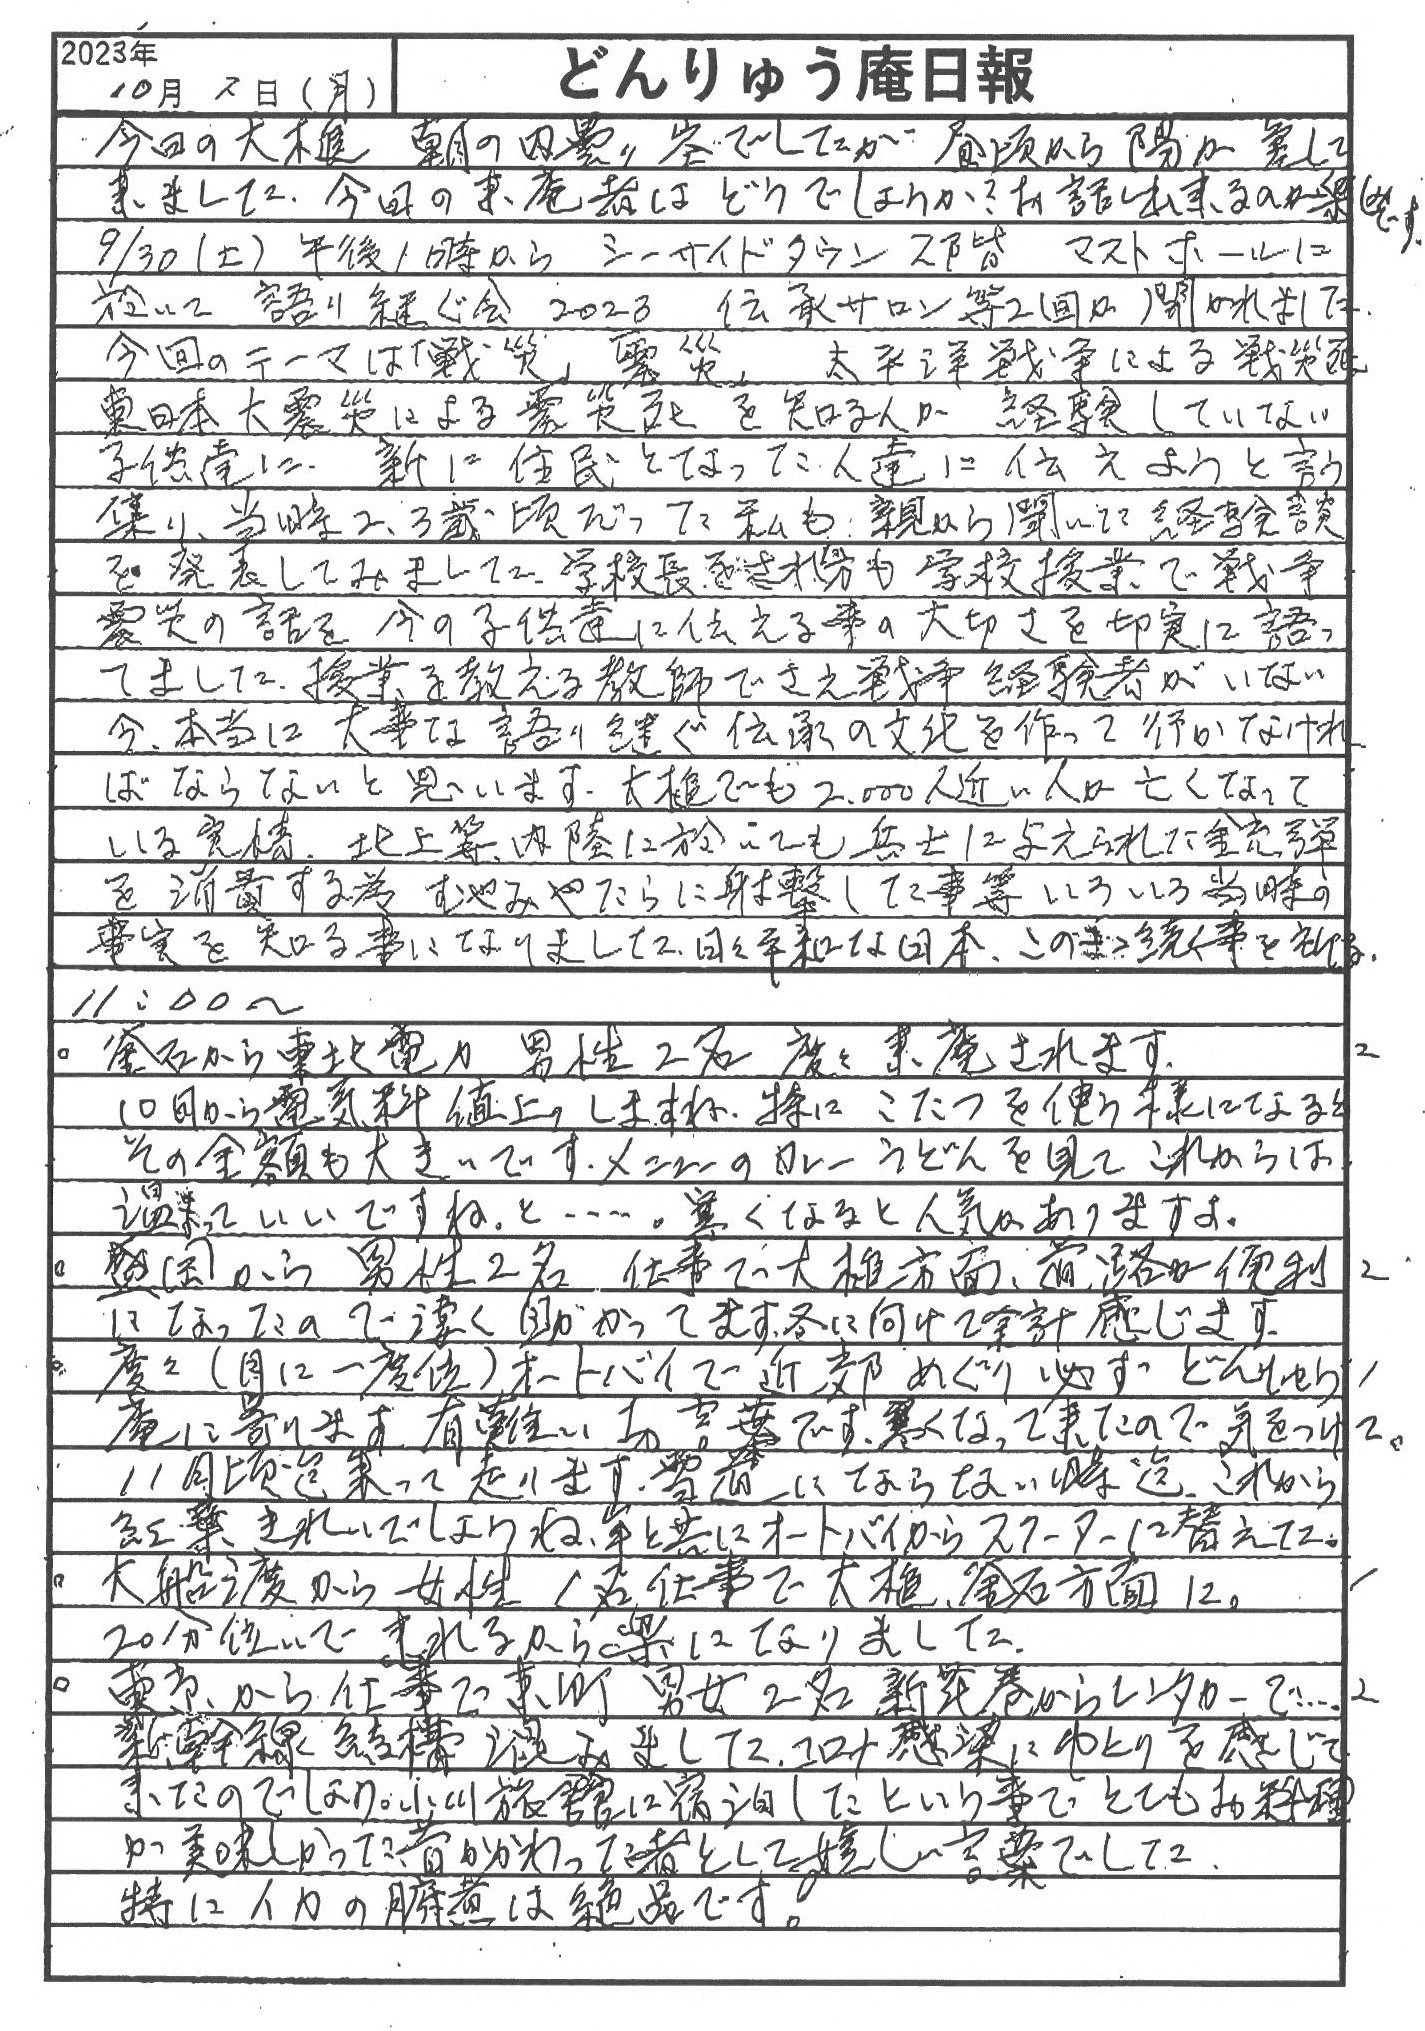 2023年
10月 2日(月)
どんりゅう庵日報
今日の大槌 朝の内曇り空でしたが 昼頃から陽が差して
来ました。今日の来庵者はどうでしょうか?お話し出来るのが楽しみです。
9/30(土) 午後1時から シーサイドタウン 2階 マストホールに
於いて 語り継ぐ会 2023 伝承サロン第2回が開かれました。
今回のテーマは「戦災」「震災」 太平洋戦争による戦災死
東日本大震災による震災死を知る人が 経験していない
子供達に 新に住民となった人達に伝えようと言う
集り、当時2、3歳頃だった私も 親から聞いた経験談
を発表してみました。学校長をされた男も学校授業で戦争
震災の話を今の子供達に伝える事の大切さを切実に語っ
てました。授業を教える教師でさえ戦争経験者がいない
今、本当に大事な語り継ぐ伝承の文化を作って行かなけれ
ばならないと思います。大槌でも2.000人近い人が亡くなって
いる実情、北上等、内陸に於いても兵士に与えられた銃弾
を消費する為 むやみやたらに射撃した事等いろいろ当時の
事実を知る事になりました。日々平和な日本、このまま続く事を祈る。
11:00〜
。釜石から東北電力 男性2名 度々来庵されます。 2
10月から電気料値上りしますね。特にこたつを使う様になると
その金額も大きいです。メニューのカレーうどんを見てこれからは
温まっていいですね。と……。寒くなると人気がありますよ。
。盛岡から 男性2名 仕事で大槌方面、道路が便利 2
になったので凄く助かってます。冬に向けて余計感じます。
。度々(月に一度位)オートバイで近郊めぐり 必ずどんりゅう 1
庵に寄ります。有難いお言葉です。寒くなって来たので気をつけて。
11月頃迄乗って走ります。雪道にならない時迄。これから
紅葉きれいでしょうね。年と共にオートバイからスクーターに替えた。
。大船渡から女性1名 仕事で大槌、釜石方面に。 1
20分位いで来れるから楽になりました。
。東京から仕事で来町 男女2名 新花巻からレンタカーで…。 2
新幹線結構混みました。コロナ感染にゆとりを感じて
来たのでしょう。小川旅館に宿泊したという事でとてもお料理
が美味しかった。昔かかわった者として嬉しい言葉でした。
特にイカの腑煮は絶品です。